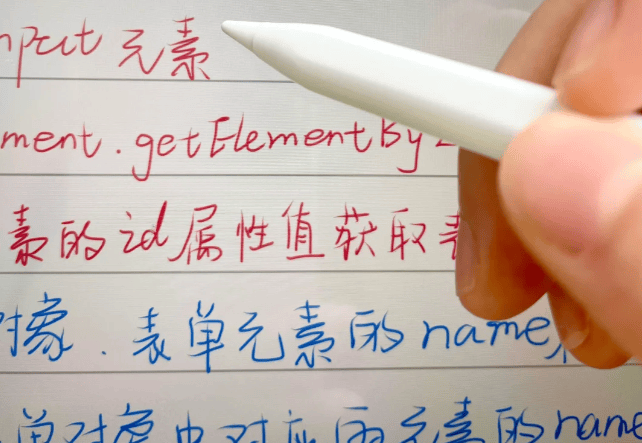 input 元素
ment.getElementBy
素的id属性值获取表
对象.表单元素的name
单对象中对应的元素的name